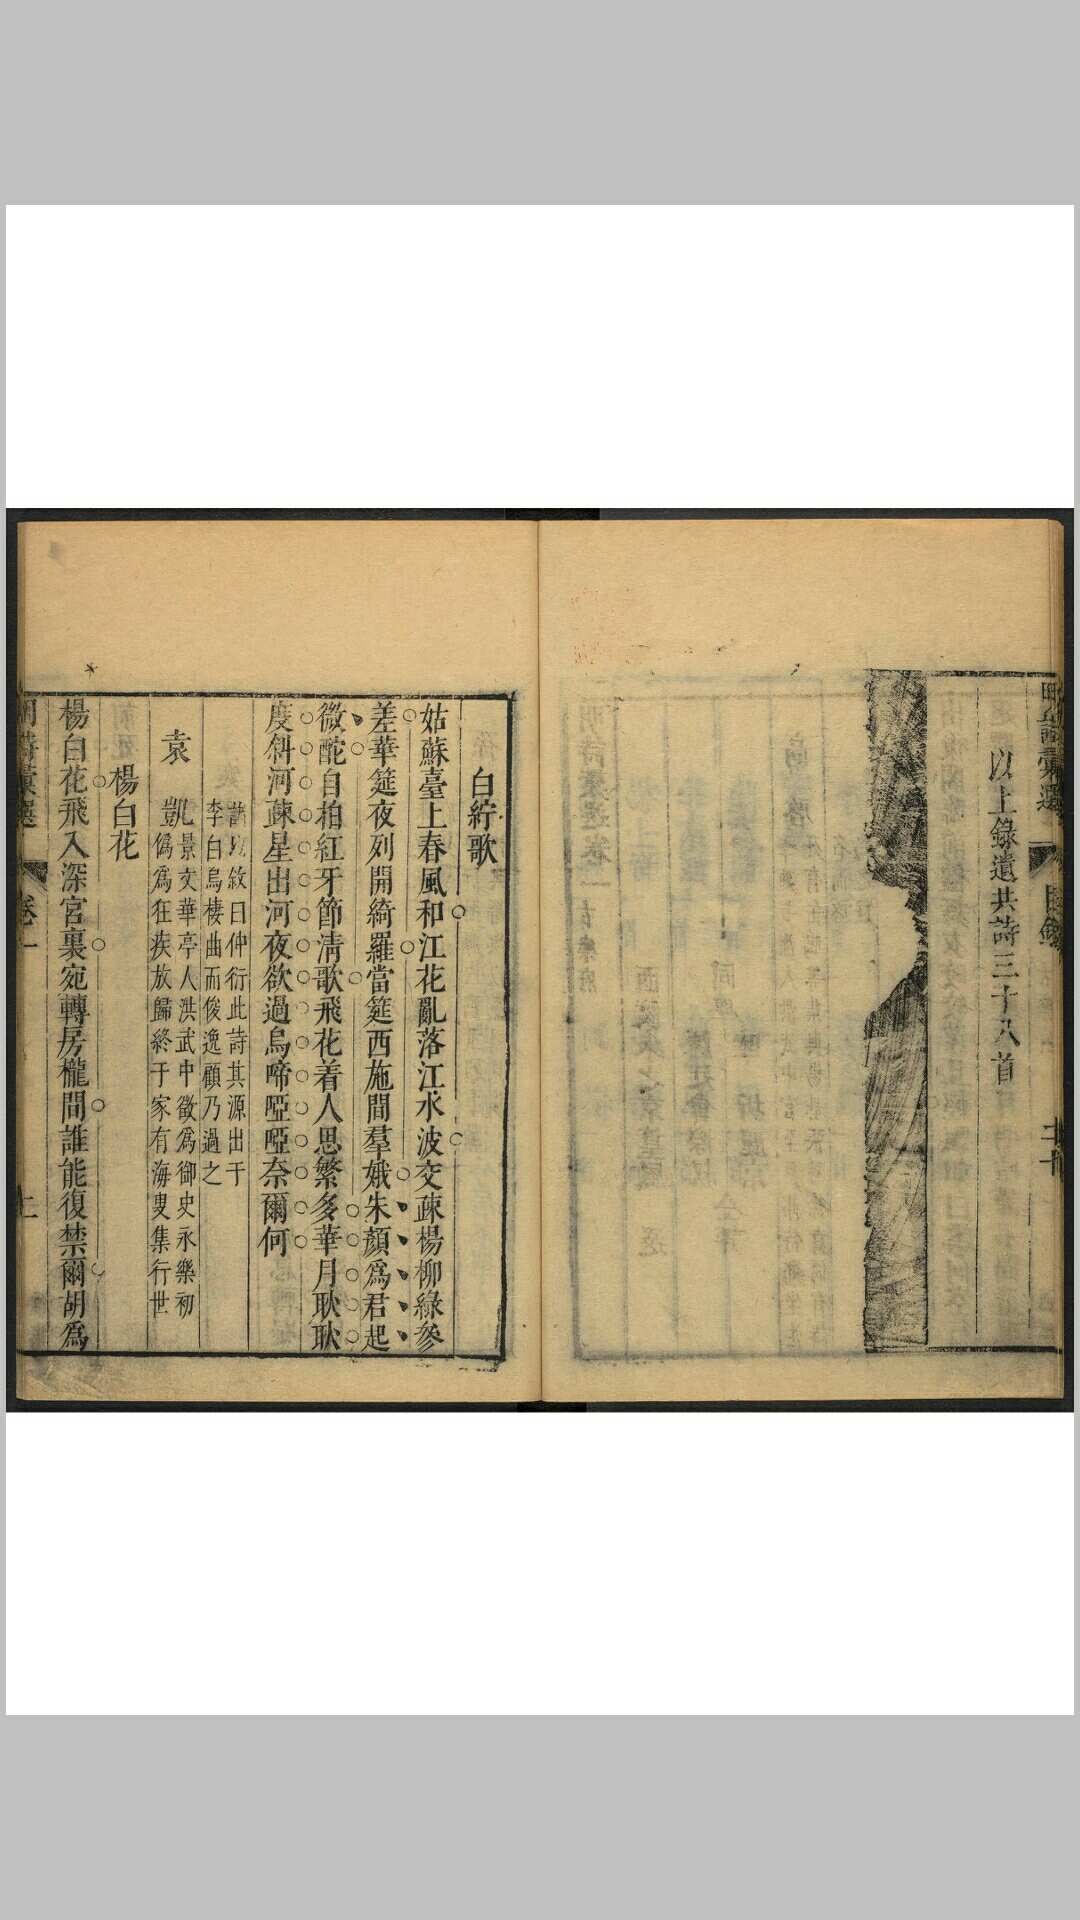 以上錄遺共詩三十八首
白紵歌
姑蘇臺上春風和江花亂落江水波交疎楊柳綠參
差華筵夜列開綺羅當筵西施間羣娥朱顏爲君起
微酡自拍紅牙節淸歌飛花着人思繁多華月耿耿
度斜河疎星出河夜欲過烏啼啞啞奈爾何
敘曰仲衍此詩其源出于
李白烏棲曲而俊逸顧乃過之
袁
凱景文華亭人洪武中徵爲御史永樂初
僞爲狂疾放歸終于家有海叟集行世
楊白花
楊白花飛入深宮裏宛轉房櫳間誰能復禁爾胡爲
卷一